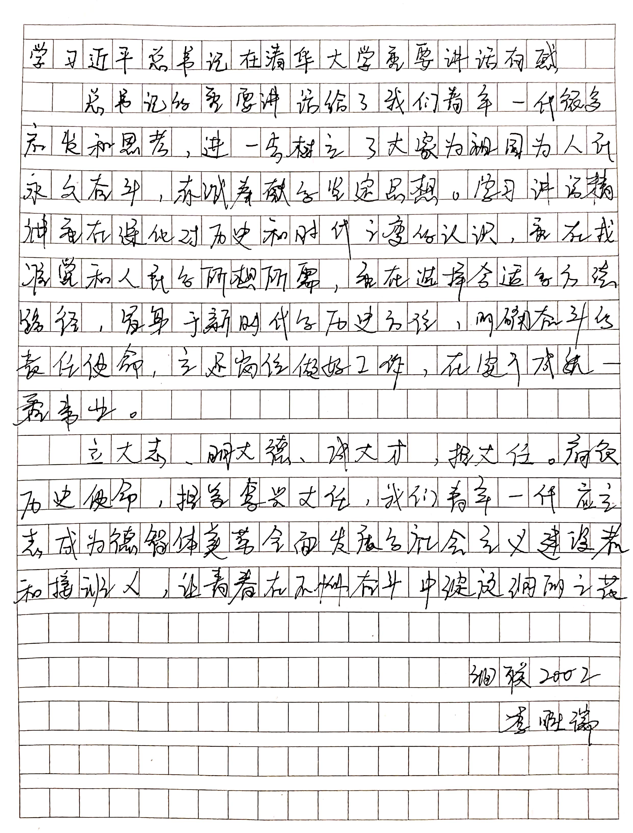 学习近平总书记在清华大学重要讲话有感
总书记的重要讲话给了我们青年一代很多
启发和思考，进一步树立了大家为祖国为人民
永久奋斗，赤诚奉献的坚定思想。学习讲话精
神重在深化对历史和时代之变的认识，重在找
准党和人民的所想所需，重在选择合适的方法
路径，置身于新时代的历史方位，明确奋斗的
责任使命，立足岗位做好工作，在实干成就一
番事业。
立大志、明大德、成大才，担大任。肩负
历史使命，担当复兴大任，我们青年一代应立
志成为德智体美劳全面发展的社会主义建设者
和接班人，让青春在不懈奋斗中绽放绚丽之花
2002
李胜瑞